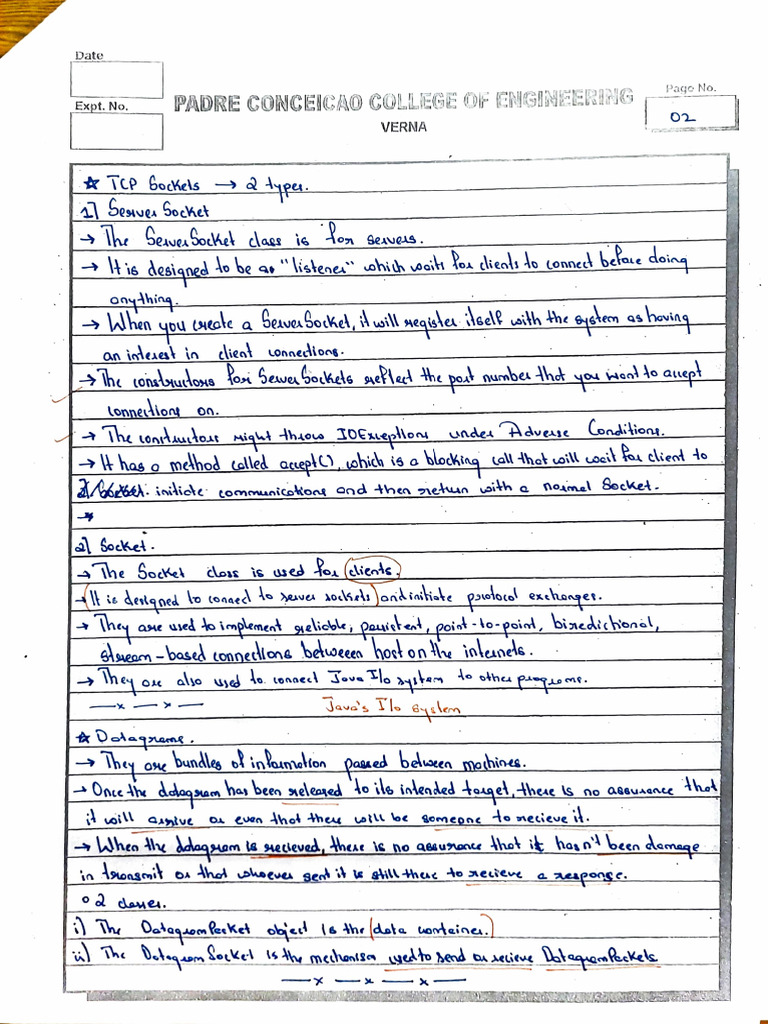 Date
Expt. No.
PADRE CONCEICAO COLLEGE OF ENGINEERING
VERNA
Page No.
02
☆ TCP Sockets → 2 types.
1] Server Socket
→ The ServerSocket class is for servers.
→ It is designed to be a "listener", which waits for clients to connect before doing
anything.
→ When you create a ServerSocket, it will register itself with the system as having
an interest in client connections.
→ The constructors for ServerSockets reflect the port number that you want to accept
connections on.
→ The constructors might throw IOExceptions under Adverse Conditions.
→ It has a method called accept(), which is a blocking call that will wait for client to
initiate communications and then return with a normal Socket.
2] Socket.
→ The Socket class is used for clients.
→ It is designed to connect to server sockets and initiate protocol exchanges.
→ They are used to implement reliable, persistent, point-to-point, biredictional,
stream-based connections betweeen host on the internets.
→ They are also used to connect Java I/o system to other programs.
—x —x—
Java's I/o system
☆ Datagrams.
→ They are bundles of information passed between machines.
→ Once the datagram has been released to its intended target, there is no assurance that
it will arrive or even that there will be someone to recieve it.
→ When the datagram is recieved, there is no assurance that it hasn't been damage
in transmit or that whoever sent it is still there to recieve a response.
o 2 classes.
i) The DatagramPacket object is the data container.
ii) The DatagramSocket is the mechanism used to send or recieve DatagramPackets
—x —x —x—